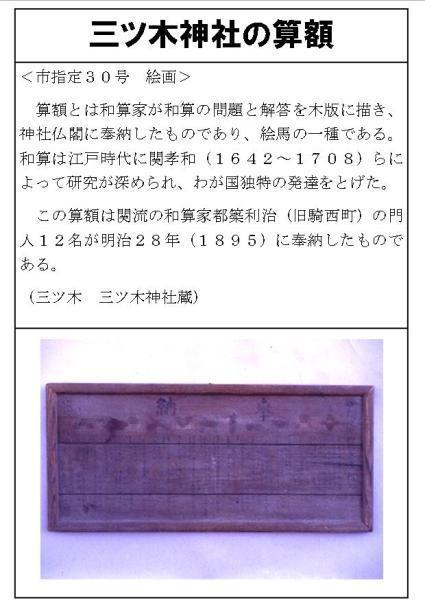 三ツ木神社の算額
＜市指定３０号　絵画＞
　算額とは和算家が和算の問題と解答を木版に描き、
神社仏閣に奉納したものであり、絵馬の一種である。
和算は江戸時代に関孝和（１６４２～１７０８）らに
よって研究が深められ、わが国独特の発達をとげた。
　この算額は関流の和算家都築利治（旧騎西町）の門
人１２名が明治２８年（１８９５）に奉納したもので
ある。
（三ツ木　三ツ木神社蔵）
納　奉